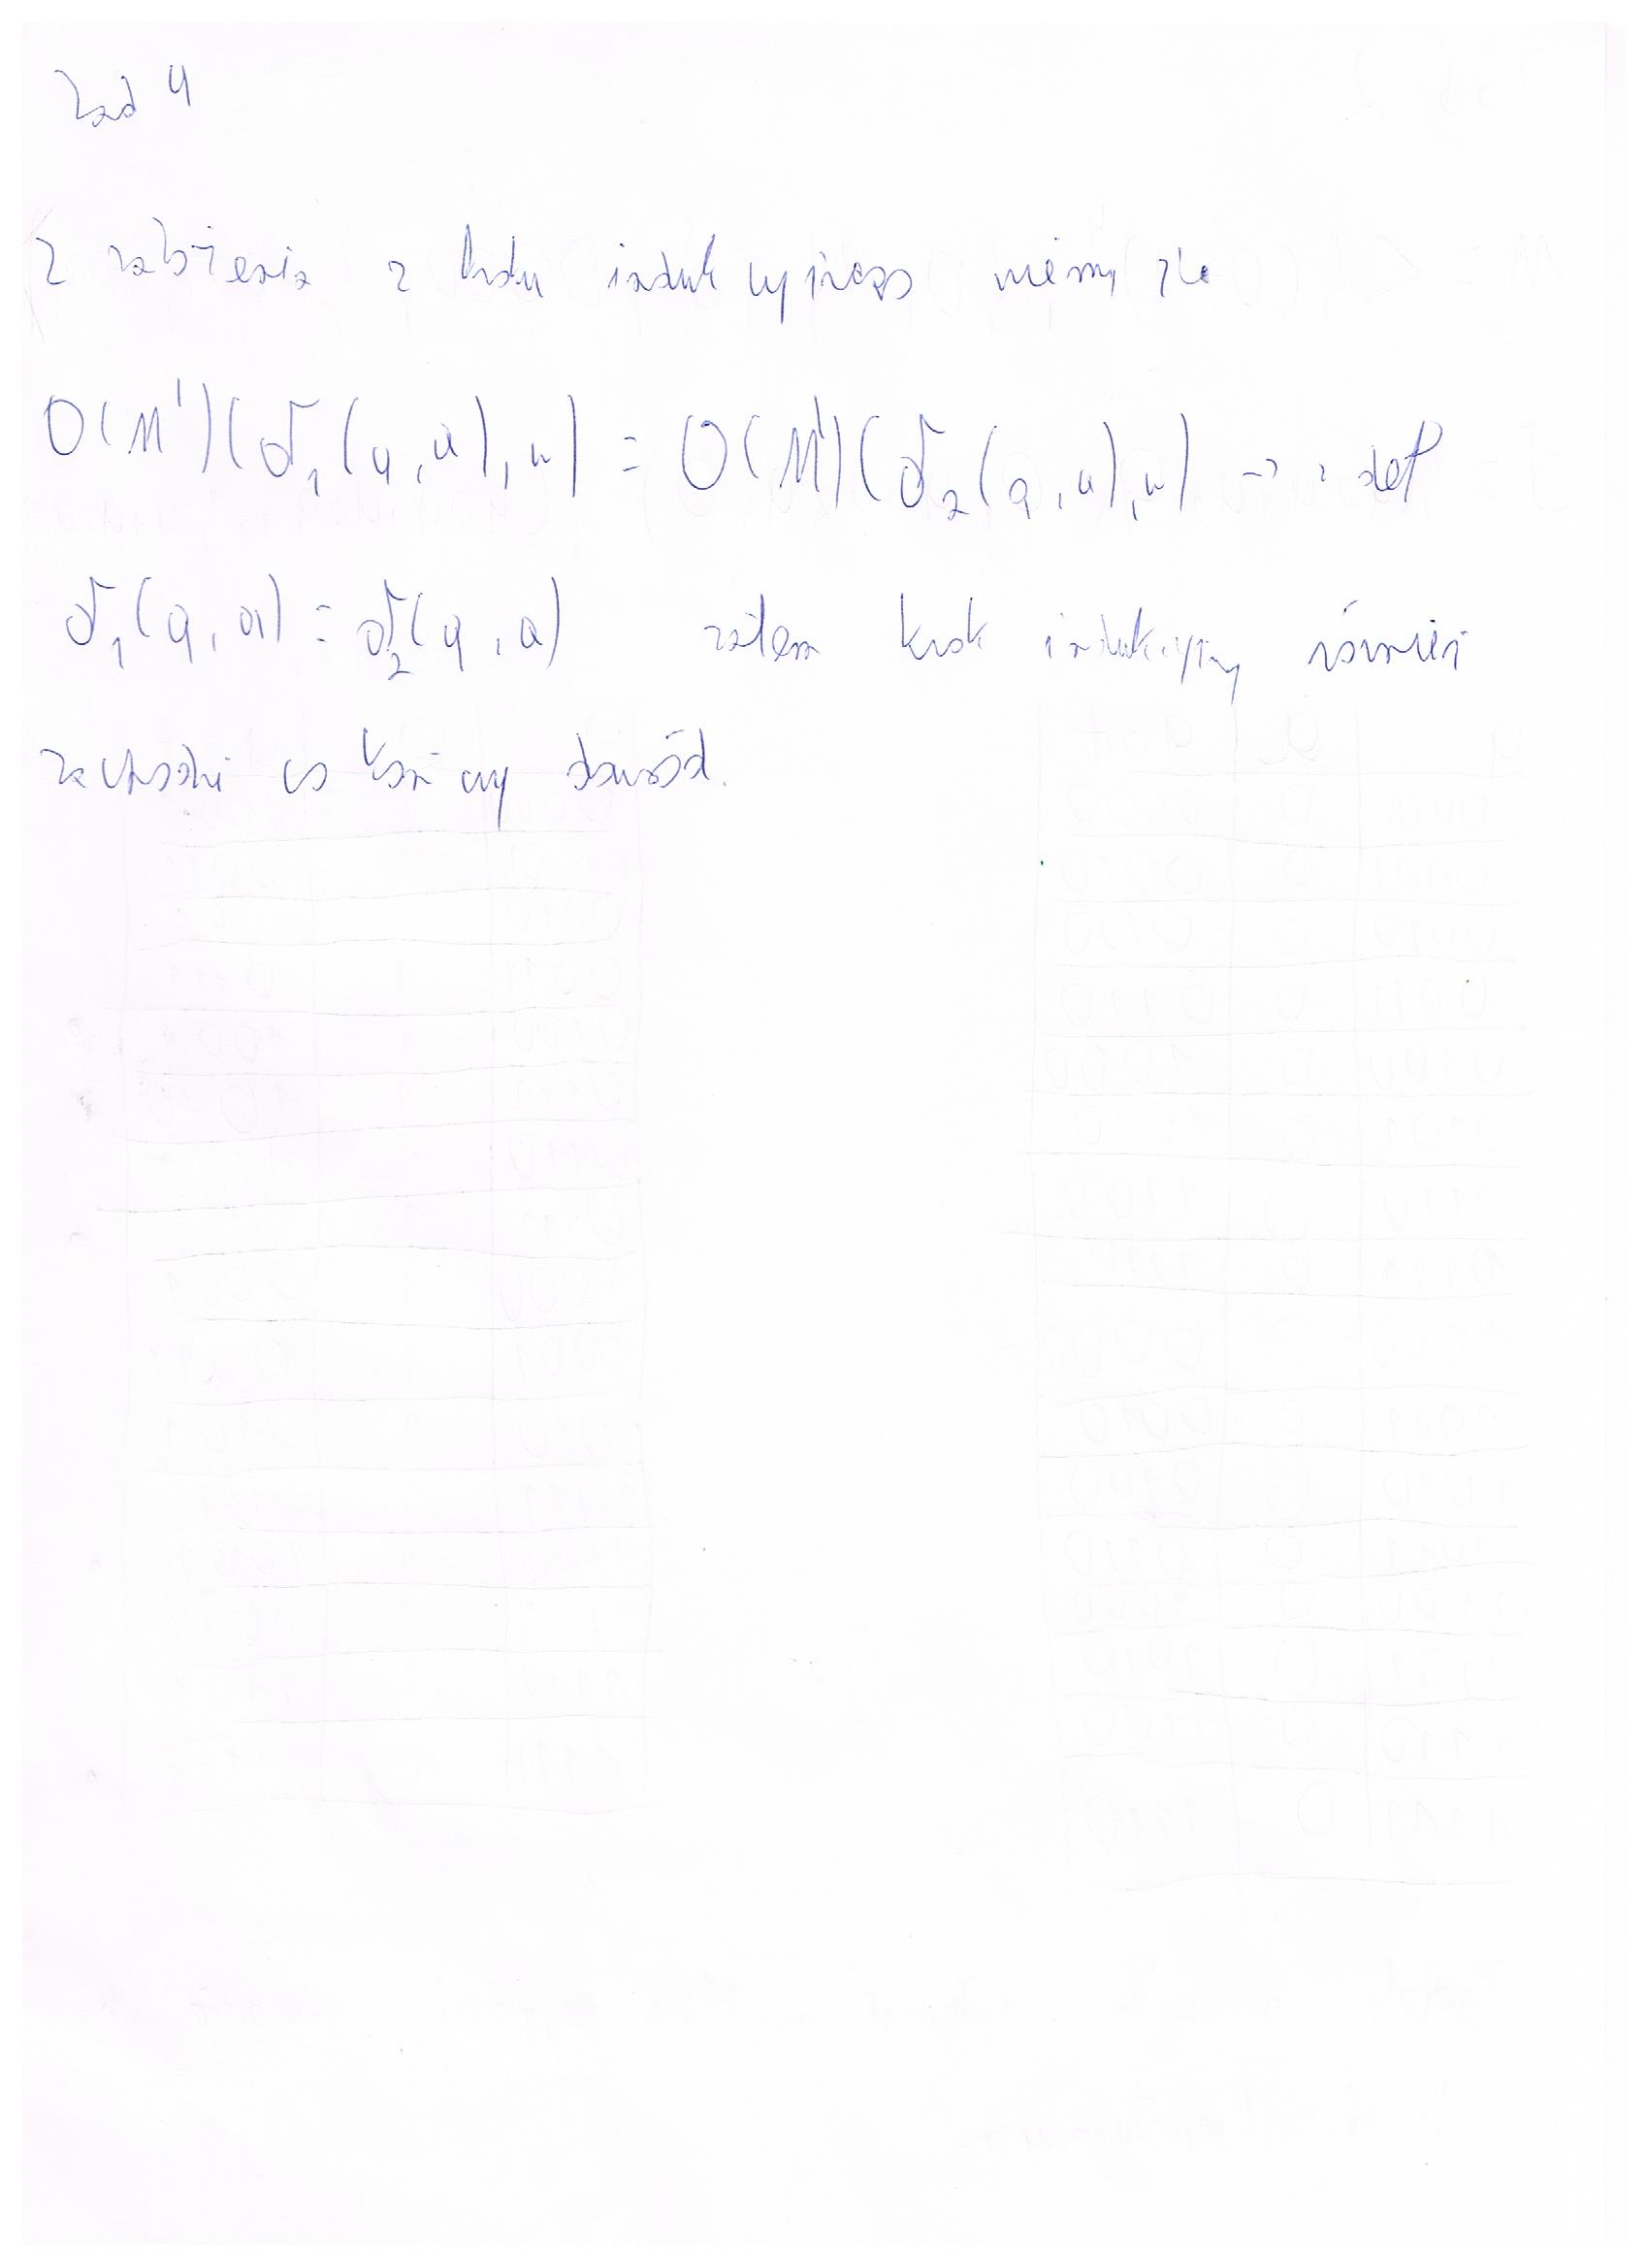 Zad 4
Z założenia z kroku indukcyjnego wiemy że
O(M')(δ₁(q,a),w) = O(M')(δ₂(q,a),w) → z def
δ₁(q,a) = δ₂(q,a) zatem krok indukcyjny również
zachodzi co kończy dowód.